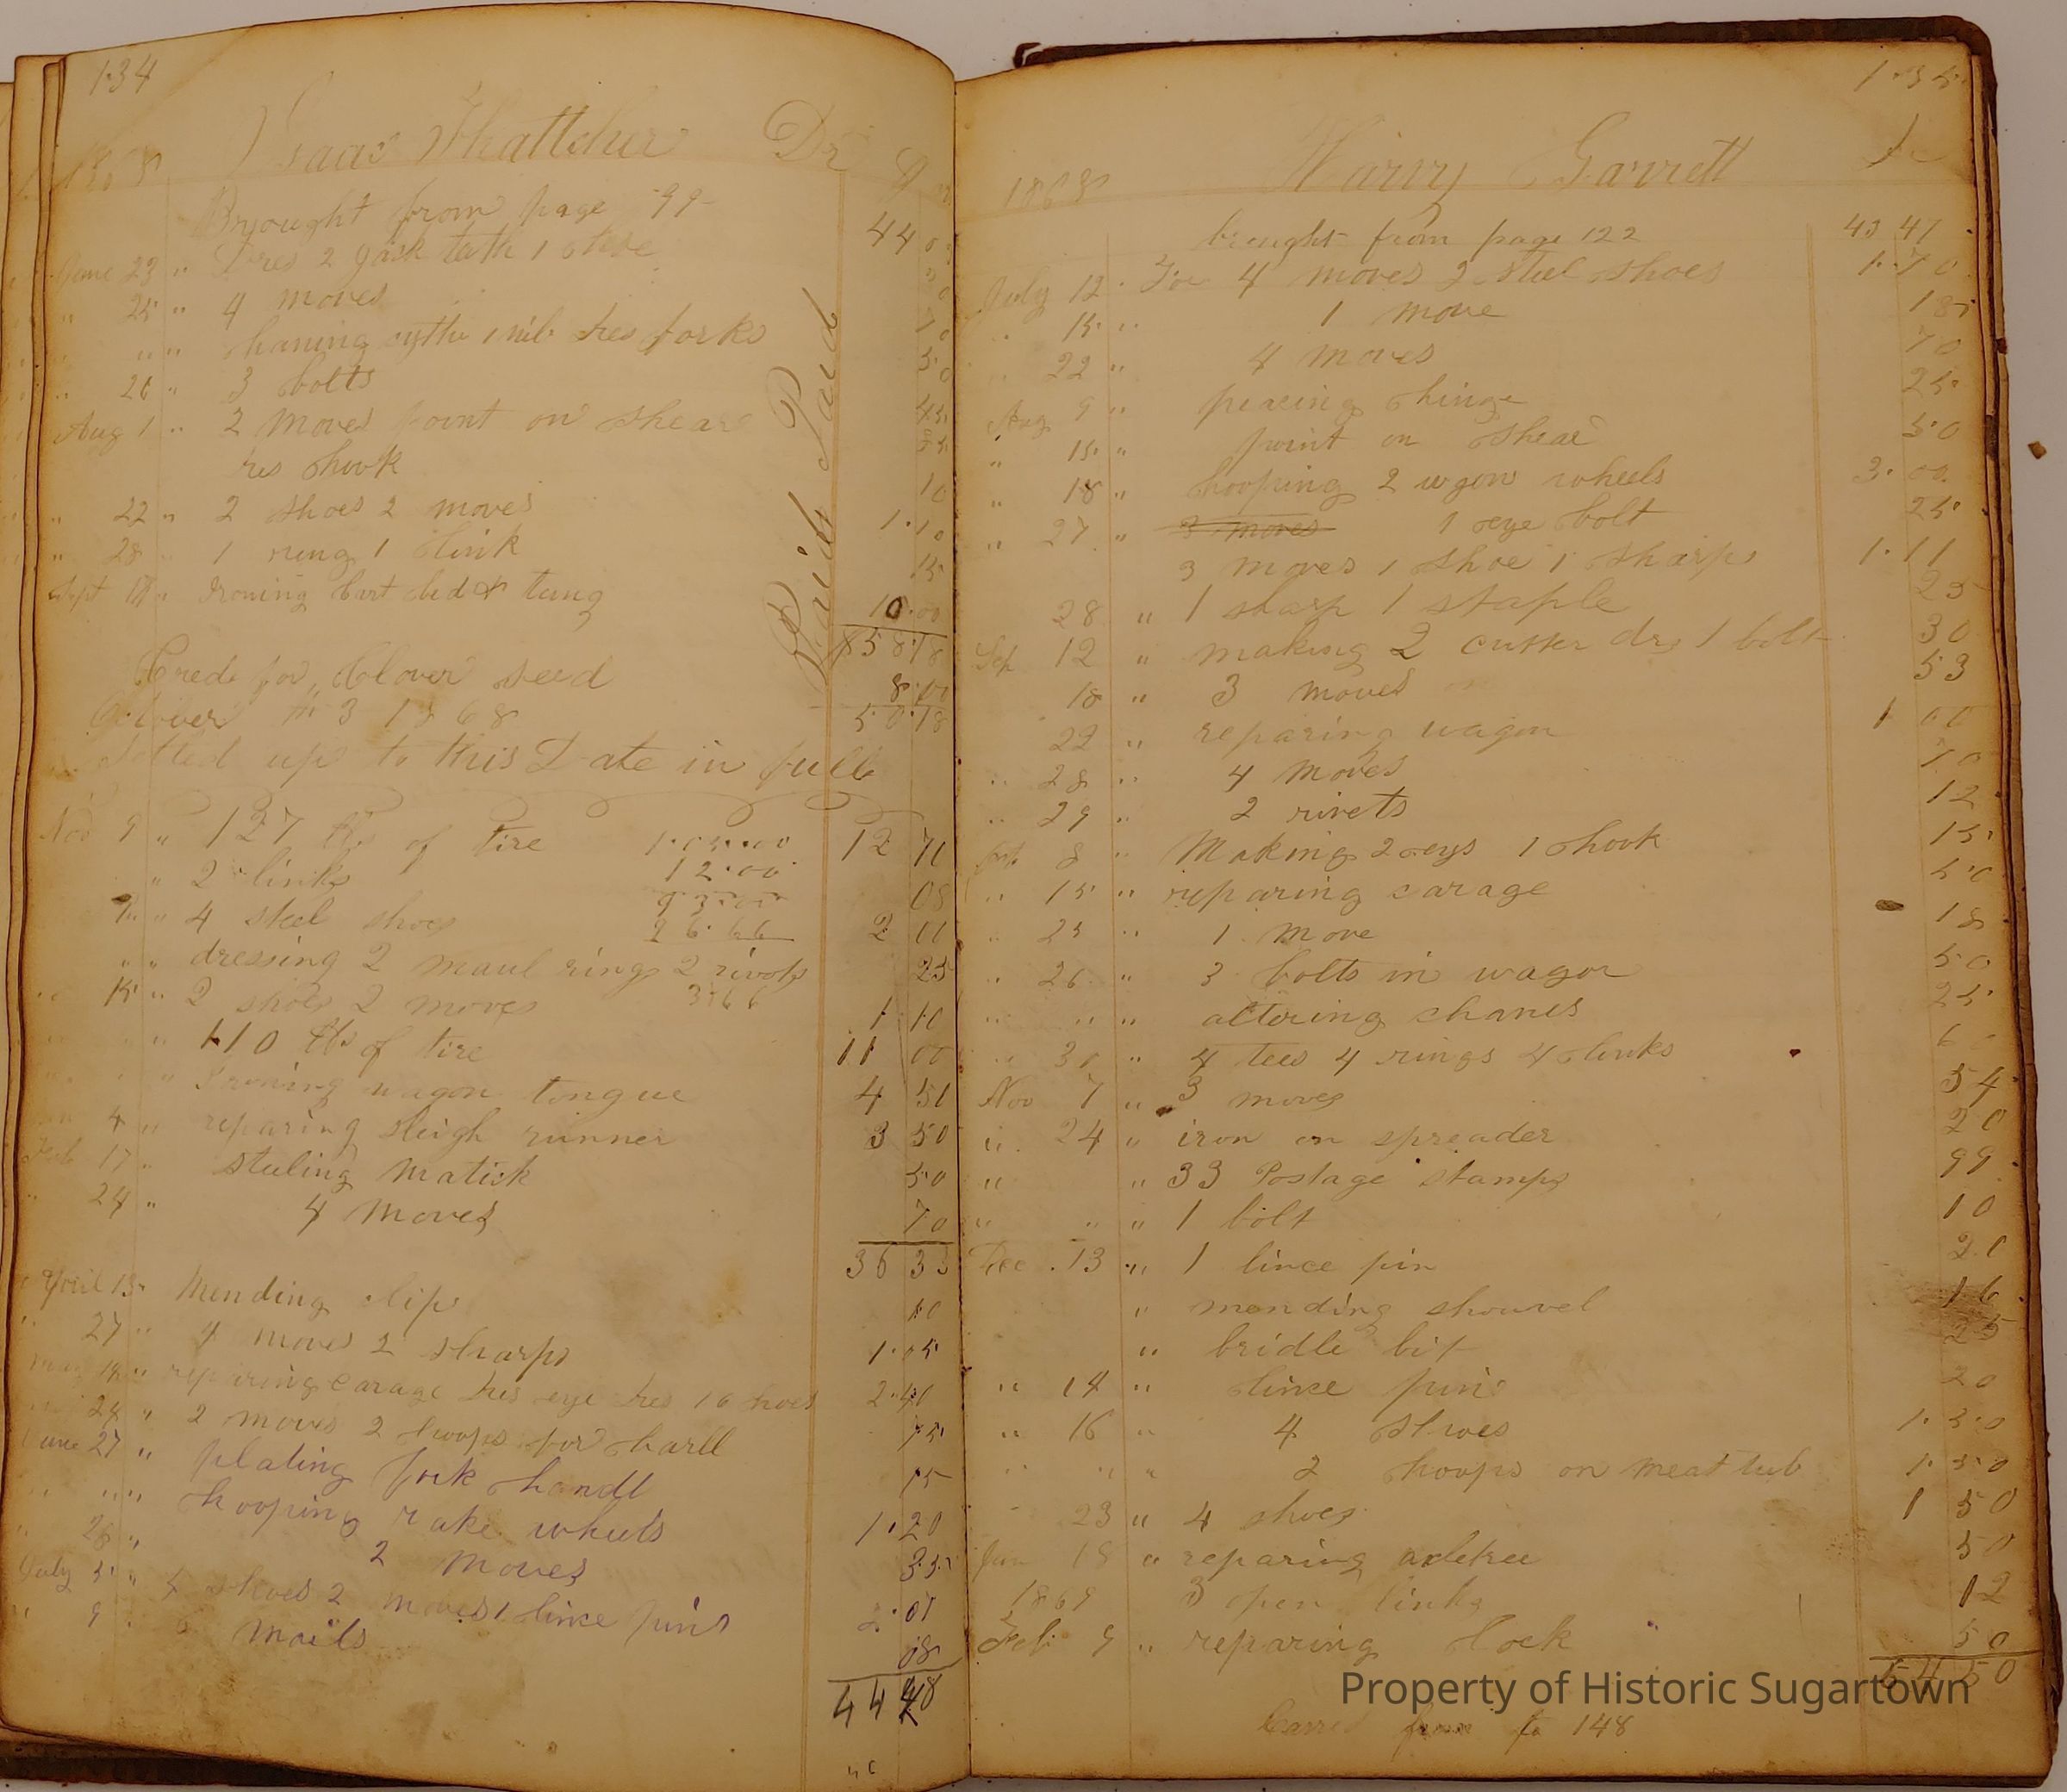 134
1868 Isaac Thattcher Dr
Bryought from page 99 44 03
June 23 " Tres 2 gask tath 1 tree
" 25 " 4 moves 70
" " " 50
" 26 " 3 bolts 45
Aug 1 " 2 moves point on sheare
tres hook 10
" 22 " 2 shoes 2 moves 1.10
" 28 " 1 ring 1 link 15
Sept " Ironing Cart bed & tung 10.00
58.18
Cred for Clover seed 8.00
October 3 1868 50.18
Setteled up to this Date in full
Paid Paid
Nov 9 " 127 lbs of tire 12 70
" 2 links 12.00 08
" " 4 steel shoes 26.66 2 00
" " dressing 2 maul rings 2 rivots 25
" 15 " 2 shoes 2 moves 3.66 1 10
" " " 110 lbs of tire 11 00
" " " Ironing wagon tongue 4 50
4 " reparing sleigh runner 3 50
Feb 17 " steling matick 50
" 24 " 4 moves 70
36 33
April 13 " Mending clip 10
" 27 " 4 moves 2 sharps 1.05
May " reparing carage tres eye tres shoes 2.40
" 24 " 2 moves 2 hoops for barll 75
June 27 " plating fork handl 15
" " " hooping rake wheels 1.20
" 28 " 2 moves 35
July 5 " 4 shoes 2 moves 1 lince pins 2.07
" 9 " mails 08
44 48
135
1868 Harry Garrett Dr
brought from page 122 43 47
July 12 " For 4 moves 2 steel shoes 1.70
" 15 " 1 move 18
" 22 " 4 moves 70
Aug 9 " peacing hinge 25
" 15 " point on shear 50
" 18 " hooping 2 wgon wheels 3.00
" 27 " 3 moves 1 eye bolt 25
3 moves 1 shoe 1 sharp 1.11
28 " 1 sharp 1 staple 25
Sep 12 " making 2 cutter drs 1 bolt 30
18 " 3 moves 53
22 " reparing wagon 1 00
" 28 " 4 moves 70
" 29 " 2 rivets 12
8 " Making 2 eys 1 hook 15
" 15 " reparing carage 50
" 25 " 1 move 18
" 26 " 3 bolts in wagon 50
" " " altering chanes 25
" 31 " 4 tees 4 rings 4 links 60
Nov 7 " 3 moves 54
" 24 " iron on spreader 20
" " 33 Postage stamps 99
" " " 1 bolt 10
Dec 13 " 1 lince pin 20
" mending shouvel 16
" bridle bit 25
" 14 " lince pin 20
" 16 " 4 shoes 1.50
" " " 2 hoops on meat tub 1.50
" 23 " 4 shoes 1 50
Jan 18 " reparing axletree 50
1869 3 open links 12
Feb 9 " reparing lock 50
54 50
Carred from to 148
Property of Historic Sugartown